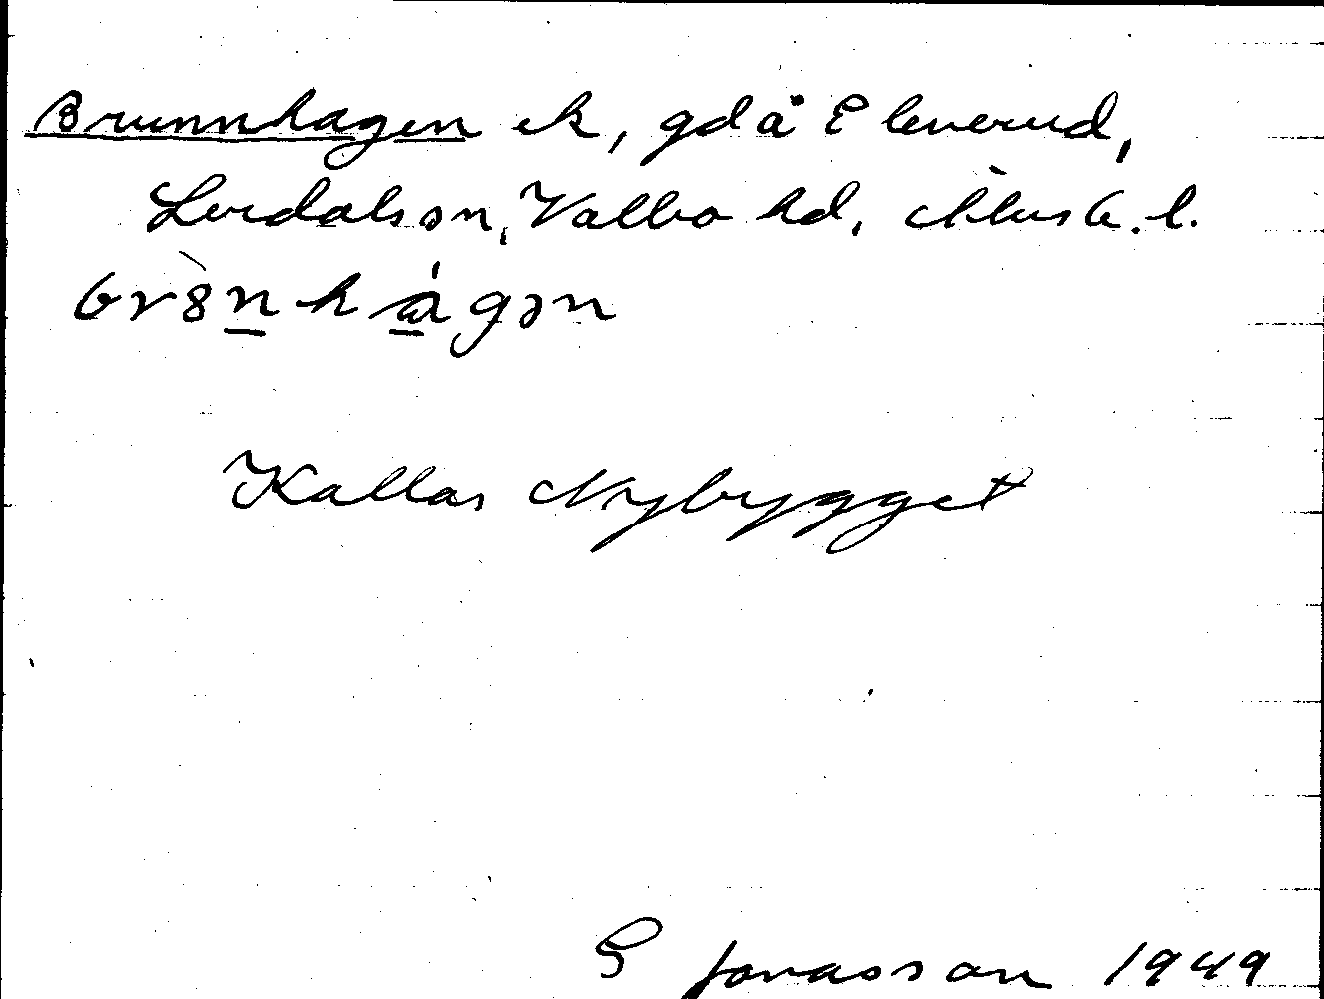 Brunnhagen ek, gd å Eleverud,
Lerdals sn, Valbo hd, Älvsb. l.
br8nhagən
Kallas Nybygget
S Jonasson 1949